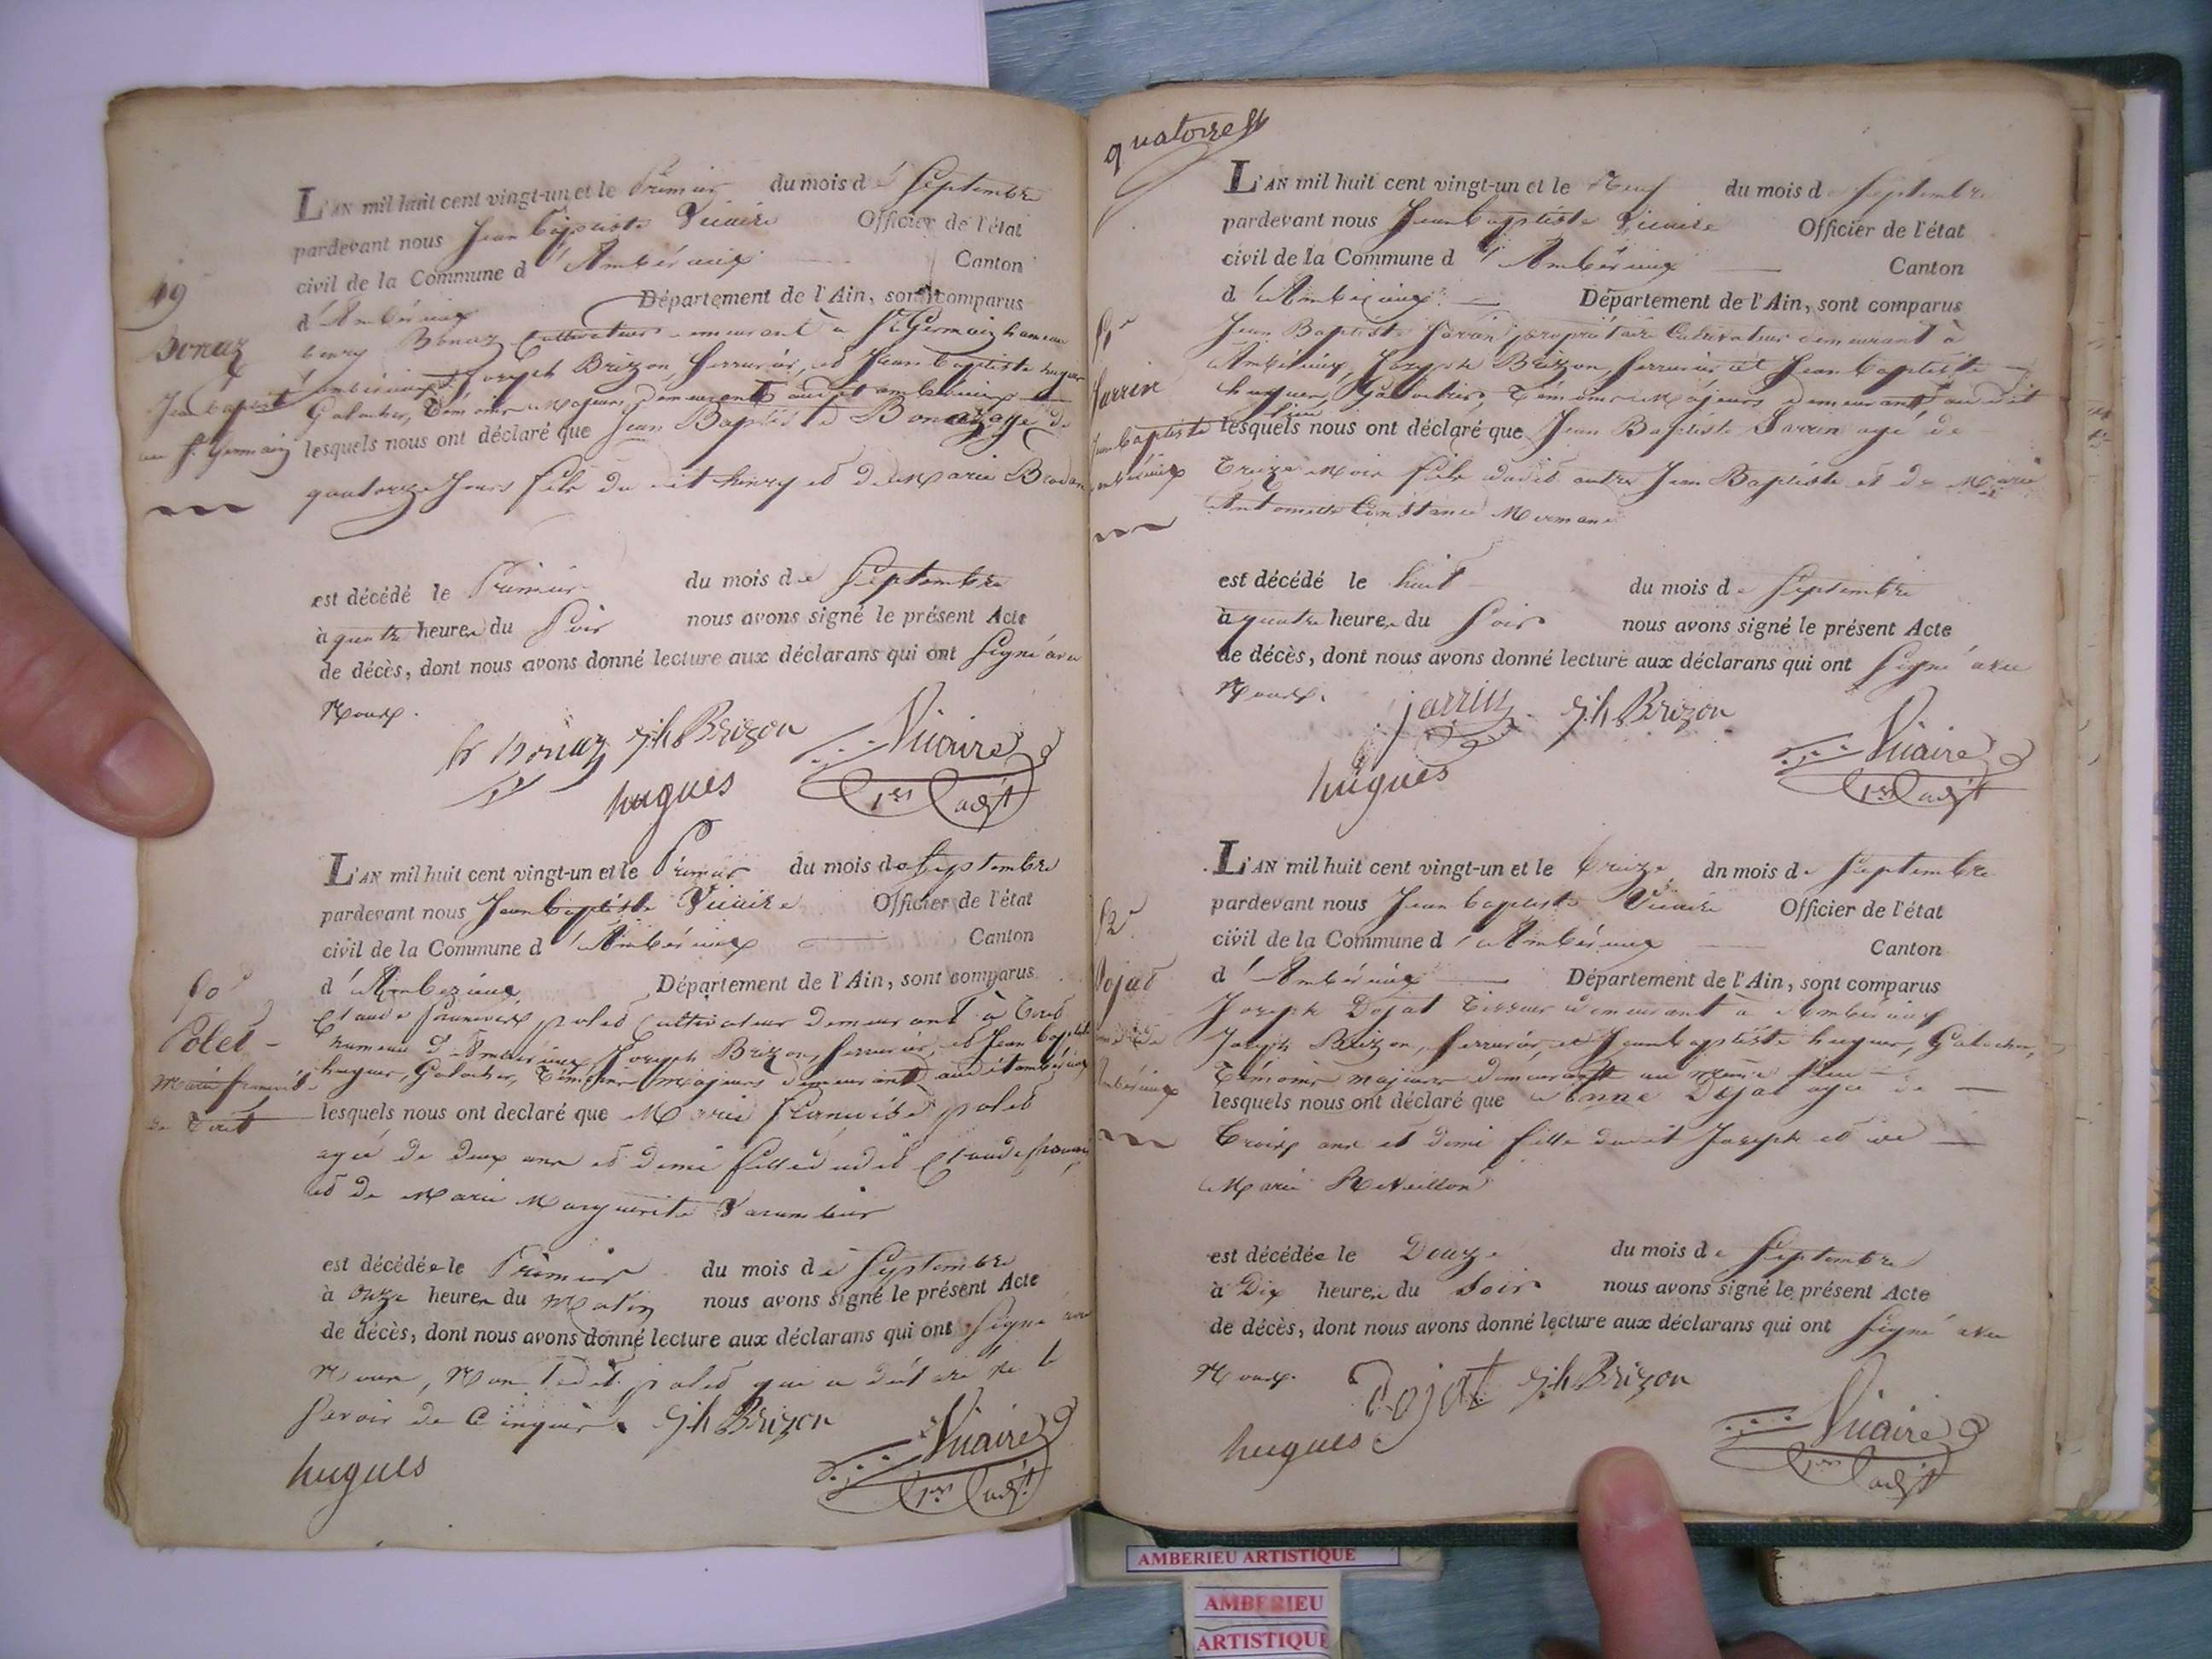 49
Bonaz
Jean baptiste
au St. Germain
L'AN mil huit cent vingt-un et le Premier du mois de Septembre
pardevant nous Jean baptiste Vicaire Officier de l'état
civil de la Commune d'Ambérieux Canton
d'Ambérieux Département de l'Ain, sont comparus
henry Bonaz Cultivateur demeurant à St Germain hameau
d'ambérieux, Joseph Brizon, Serrurier, et Jean baptiste hugues
Galocher, Témoins Majeurs demeurants audit ambérieux
lesquels nous ont déclaré que Jean Baptiste Bonaz agé de
quatorze Jours fils du dit henry et de Marie
est décédé le Premier du mois de Septembre
à quatre heures du Soir nous avons signé le présent Acte
de décès, dont nous avons donné lecture aux déclarans qui ont Signé avec
Nous.
hr bonaz Jh Brizon Vicaire
hugues 1er adjt
50
Polet
Marie francoise
de Tiret
L'AN mil huit cent vingt-un et le Premier du mois de Septembre
pardevant nous Jean baptiste Vicaire Officier de l'état
civil de la Commune d'Ambérieux Canton
d'Ambérieux Département de l'Ain, sont comparus
Claude francois polet Cultivateur demeurant à Tiret
hameau d'Ambérieux Joseph Brizon, Serrurier, et Jean baptiste
hugues, Galocher, Témoins majeurs demeurants audit ambérieux
lesquels nous ont declaré que Marie francoise polet
agée de deux ans et demi fille dudit Claude francois
et de Marie Marguerite
est décédée le Premier du mois de Septembre
à onze heures du Matin nous avons signé le présent Acte
de décès, dont nous avons donné lecture aux déclarans qui ont Signé avec
Nous, Non ledit polet qui a déclaré ne le
Savoir de ce enquis. Jh Brizon
hugues Vicaire
1er adjt
quatorze
51e
Jarrin
Jean baptiste
ambérieux
L'AN mil huit cent vingt-un et le Neuf du mois de Septembre
pardevant nous Jean baptiste Vicaire Officier de l'état
civil de la Commune d'Ambérieux Canton
d'Ambérieux Département de l'Ain, sont comparus
Jean Baptiste Jarrin propriétaire Cultivateur demeurant à
Ambérieux, Joseph Brizon, Serrurier et Jean baptiste
hugues, Galocher, Témoins Majeurs demeurants audit
lieu
lesquels nous ont déclaré que Jean Baptiste Jarrin agé de
Treize Mois fils dudit autre Jean Baptiste et de Marie
Antoinette Constance
est décédé le huit du mois de Septembre
à quatre heures du Soir nous avons signé le présent Acte
de décès, dont nous avons donné lecture aux déclarans qui ont Signé avec
Nous.
jarrin Jh Brizon
hugues Vicaire
1er adjt
52e
Dojat
Ambérieux
L'AN mil huit cent vingt-un et le treize dn mois de Septembre
pardevant nous Jean baptiste Vicaire Officier de l'état
civil de la Commune d'Ambérieux Canton
d'Ambérieux Département de l'Ain, sont comparus
Joseph Dojat Tisseur demeurant à Ambérieux
Joseph Brizon, Serrurier, et Jean baptiste hugues, Galocher,
Témoins majeurs demeurants au même lieu
lesquels nous ont déclaré que Anne Dojat agée de
Trois ans et demi fille dudit Joseph et de
Marie Reveillon
est décédée le Douze du mois de Septembre
à Dix heures du Soir nous avons signé le présent Acte
de décès, dont nous avons donné lecture aux déclarans qui ont Signé avec
Nous.
Dojat Jh Brizon
hugues Vicaire
1er adjt
AMBERIEU ARTISTIQUE
AMBERIEU
ARTISTIQUE